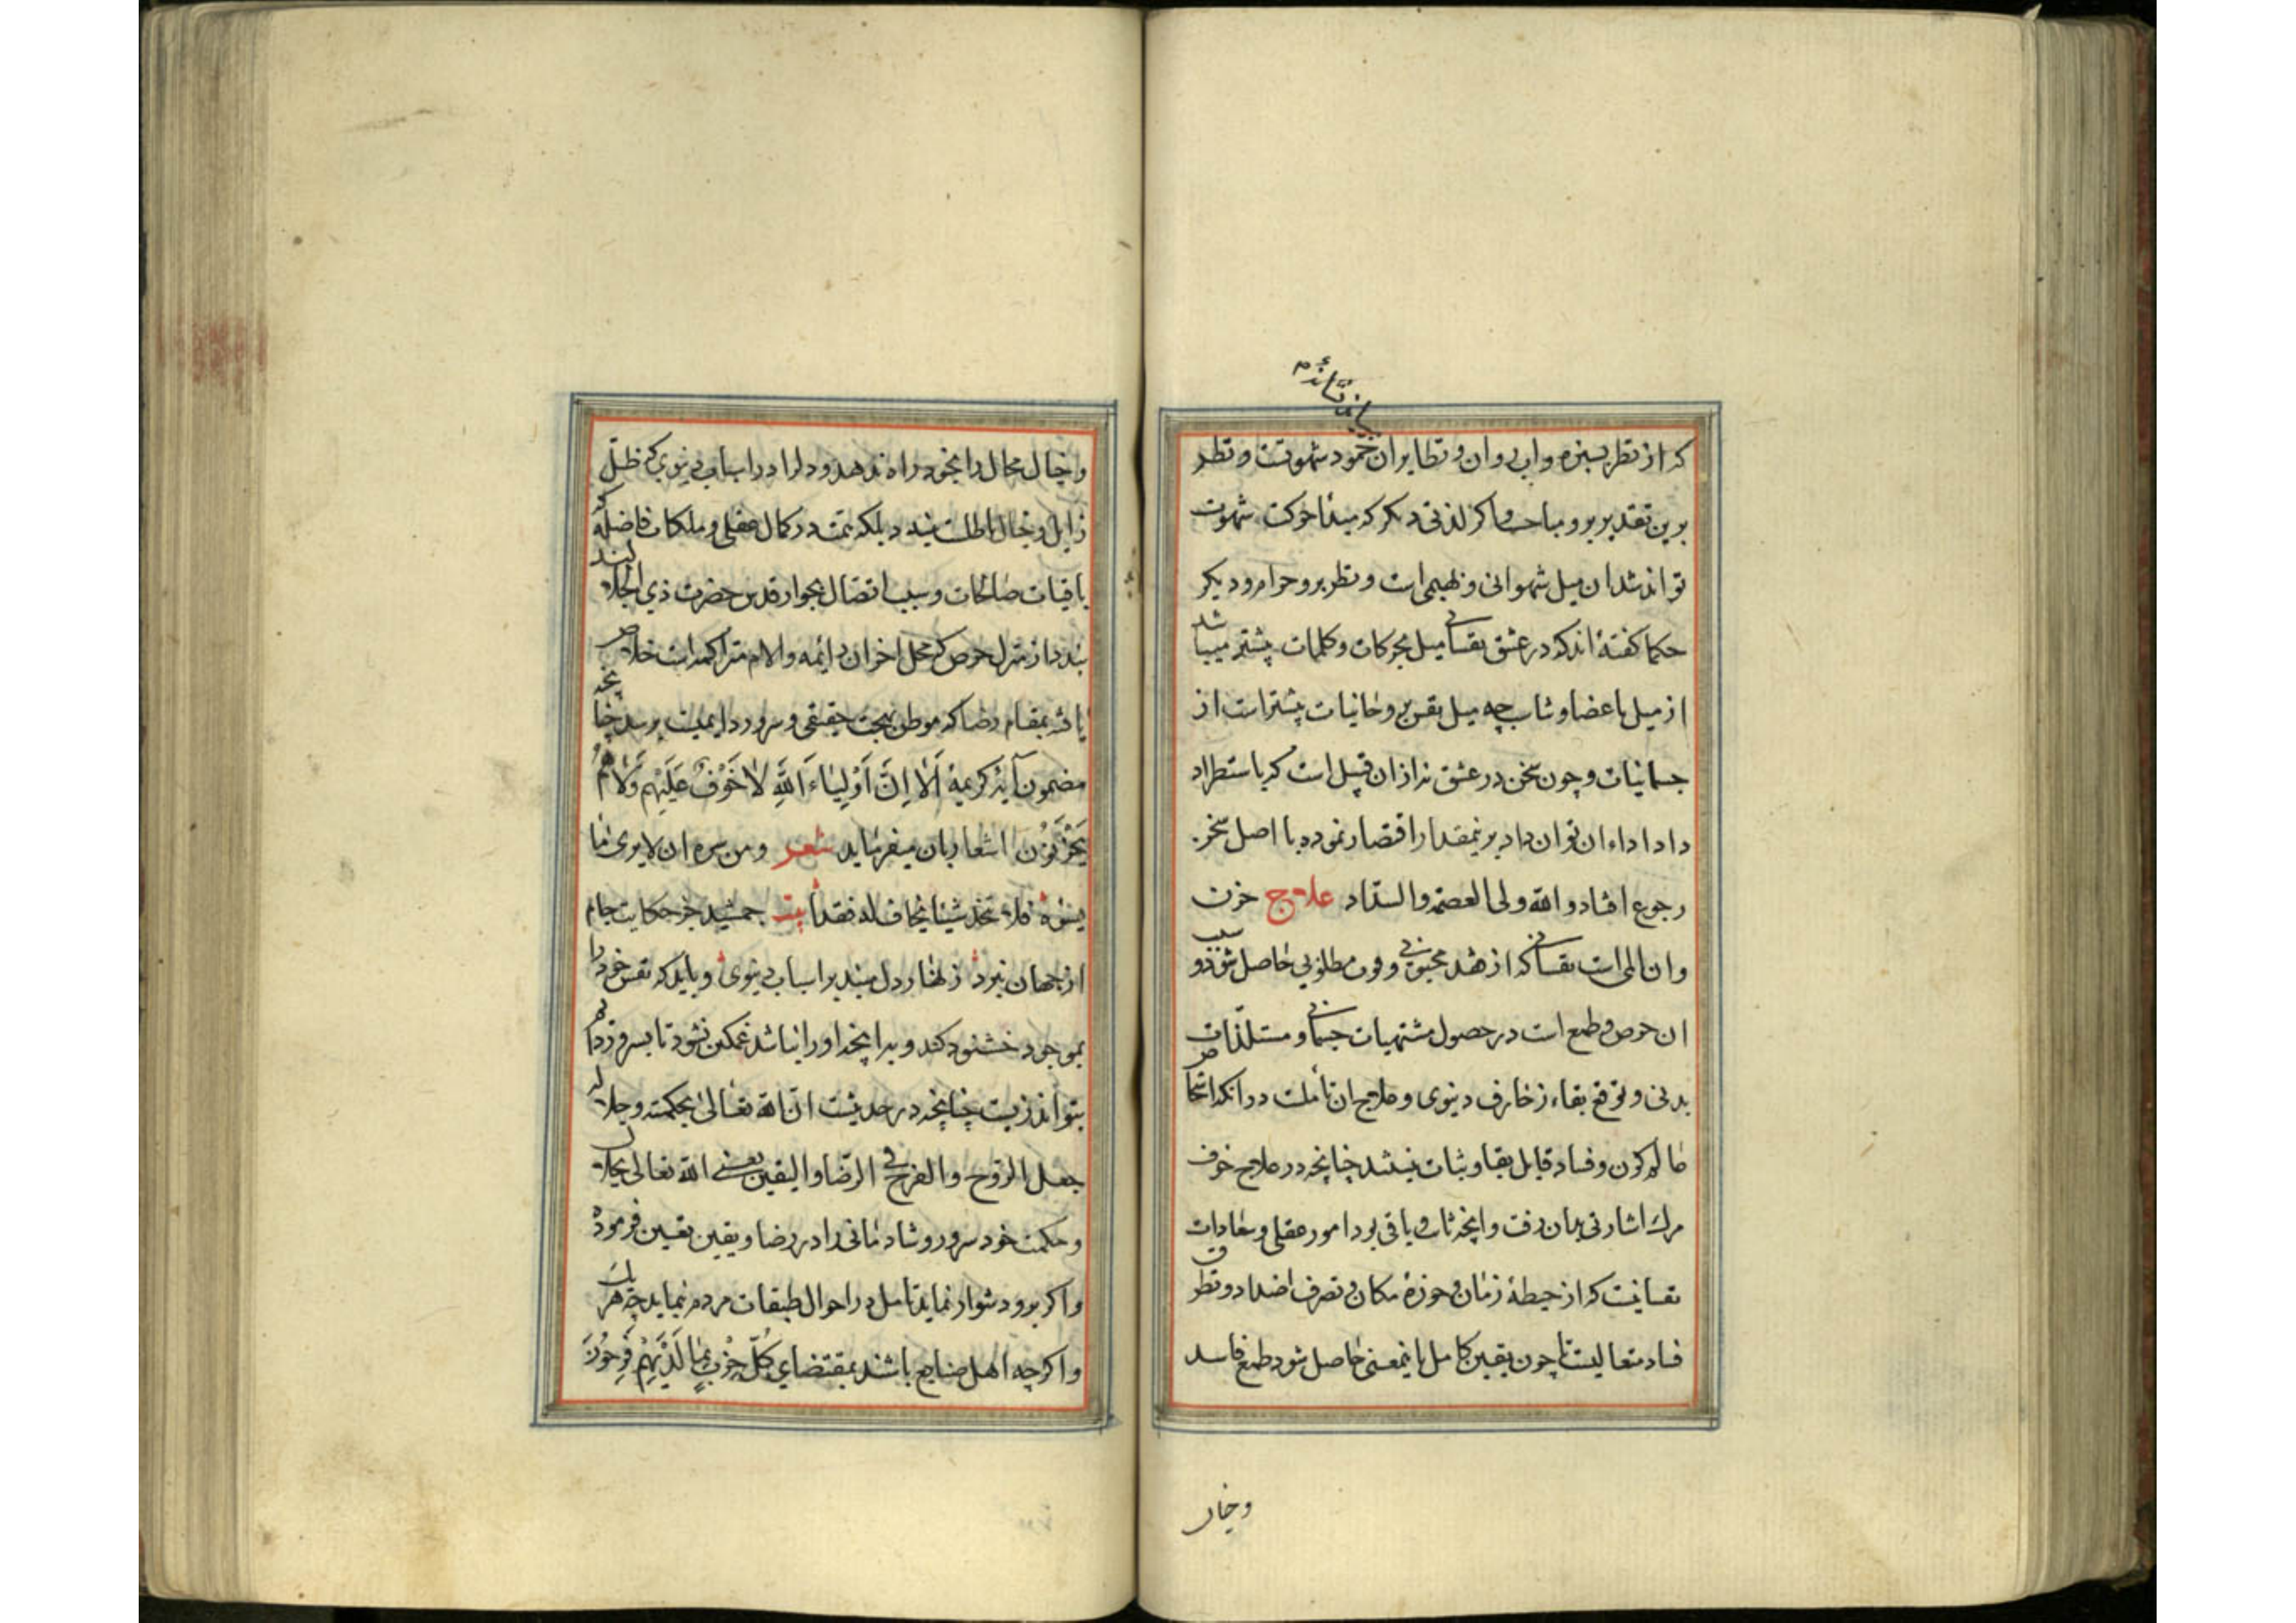 لذت نفسانی
که از نظر بسبزه و اب روان و نظایر ان خمود شهوتست و نظر
برین تقدیر برو مباحست و اکر لذتی دیکر که مبداء حرکت شهوت
تواند شد ان میل شهوانی و بهیمی است و نظر برو حرام و دیکر
حکما کفته‌اند که در عشق نفسانی میل بحرکات و کلمات بیشتر میباشد
از میل باعضا و تناسب چه میل نفس بروحانیات بیشتر است از
جسمانیات و چون سخن در عشق نه از ان قبیل است که باستطراد
داد اداء ان توان داد برینمقدار اقتصار نموده با اصل سخن
رجوع افتاد والله ولی العصمة والسداد علاج حزن
و ان المی است نفسانی که از فقد محبوبی و فوت مطلوبی حاصل شود و سبب
ان حرص و طمع است در حصول مشتهیات جسمانی و مستلذات
بدنی و توقع بقاء زخارف دنیوی و علاج ان تأملست در انکه اشخاص
عالم کون و فساد قابل بقا و ثبات نیستند چنانچه در علاج خوف
مرک اشارتی بدان رفت و انچه ثابت و باقی بود امور عقلی و سعادات
نفسانیست که از حیطهٔ زمان و حوزهٔ مکان و تصرف اضداد و تطرق
فساد متعالیست تا چون یقین کامل باینمعنی حاصل شود طمع فاسد
وخیال
و خیال محال را بخود راه ندهد و دل را در اسباب دنیوی که ظل
زایل و خیال باطلست نبندد بلکه همت در کمال عقلی و ملکات فاضله که
باقیات صالحات و سبب اتصال بجوار قدس حضرت ذی الجلالند
بندد تا از منزل حرص که محل احزان دائمه و الام متراکمه است خلاص
یافته بمقام رضا که موطن بهجت حقیقی و سرور دایمیست برسد چنانچه
مضمون آیهٔ کریمهٔ اَلا اِنَّ اَوْلِیاءَ اللّٰهِ لا خَوْفٌ عَلَیْهِم وَلا هُم
یَحْزَنُونَ اشعار بان میفرماید شعر و من سره ان لا یری ما
یسوءه فلا یتخذ شیئا یخاف له فقدا بیت جمشید جز حکایت جام
از جهان نبرد زنهار دل مبند بر اسباب دنیوی و باید که نفس خود را
بموجود خشنود کند و بدانچه او را نباشد غمکین نشود تا بسرور دایم
بتواند زیست چنانچه در حدیثست ان الله تعالی بحکمته و جلاله
جعل الروح و الفرح فی الرضا و الیقین یعنی الله تعالی بجلال
و حکمت خود سرور و شادمانی را در رضا و یقین تعیین فرموده
و اکر برو دشوار نماید تامل در احوال طبقات مردم نماید چه هر یک
و اکرچه اهل صنایع باشند بمقتضای کُلُّ حِزْبٍ بِمٰا لَدَیْهِمْ فَرِحُونَ